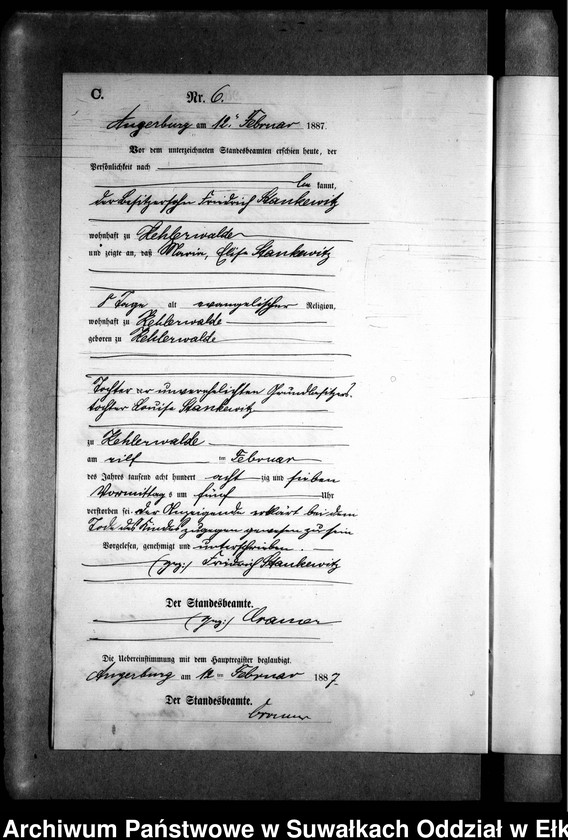 C.
Nr. 6.
Angerburg am 12. Februar 1887.
Vor dem unterzeichneten Standesbeamten erschien heute, der
Persönlichkeit nach
be kannt,
der Besitzersohn Friedrich Stankewitz
wohnhaft zu Kehlerwalde
und zeigte an, daß Maria, Elise Stankewitz
8 Tage alt evangelischer Religion,
wohnhaft zu Kehlerwalde
geboren zu Kehlerwalde
Tochter der unverehelichten Grundbesitzers-
tochter Louise Stankewitz
zu Kehlerwalde
am eilf ten Februar
des Jahres tausend acht hundert acht zig und sieben
Vormittag s um fünf Uhr
verstorben sei. der Anzeigende erklärt bei dem
Tode des Kindes zugegen gewesen zu sein
Vorgelesen, genehmigt und unterschrieben.
(gez:) Friedrich Stankewitz
Der Standesbeamte.
(gez:) Cramer
Die Uebereinstimmung mit dem Hauptregister beglaubigt.
Angerburg am 12 ten Februar 1887.
Der Standesbeamte.
Cramer
Archiwum Państwowe w Suwałkach Oddział w Ełk